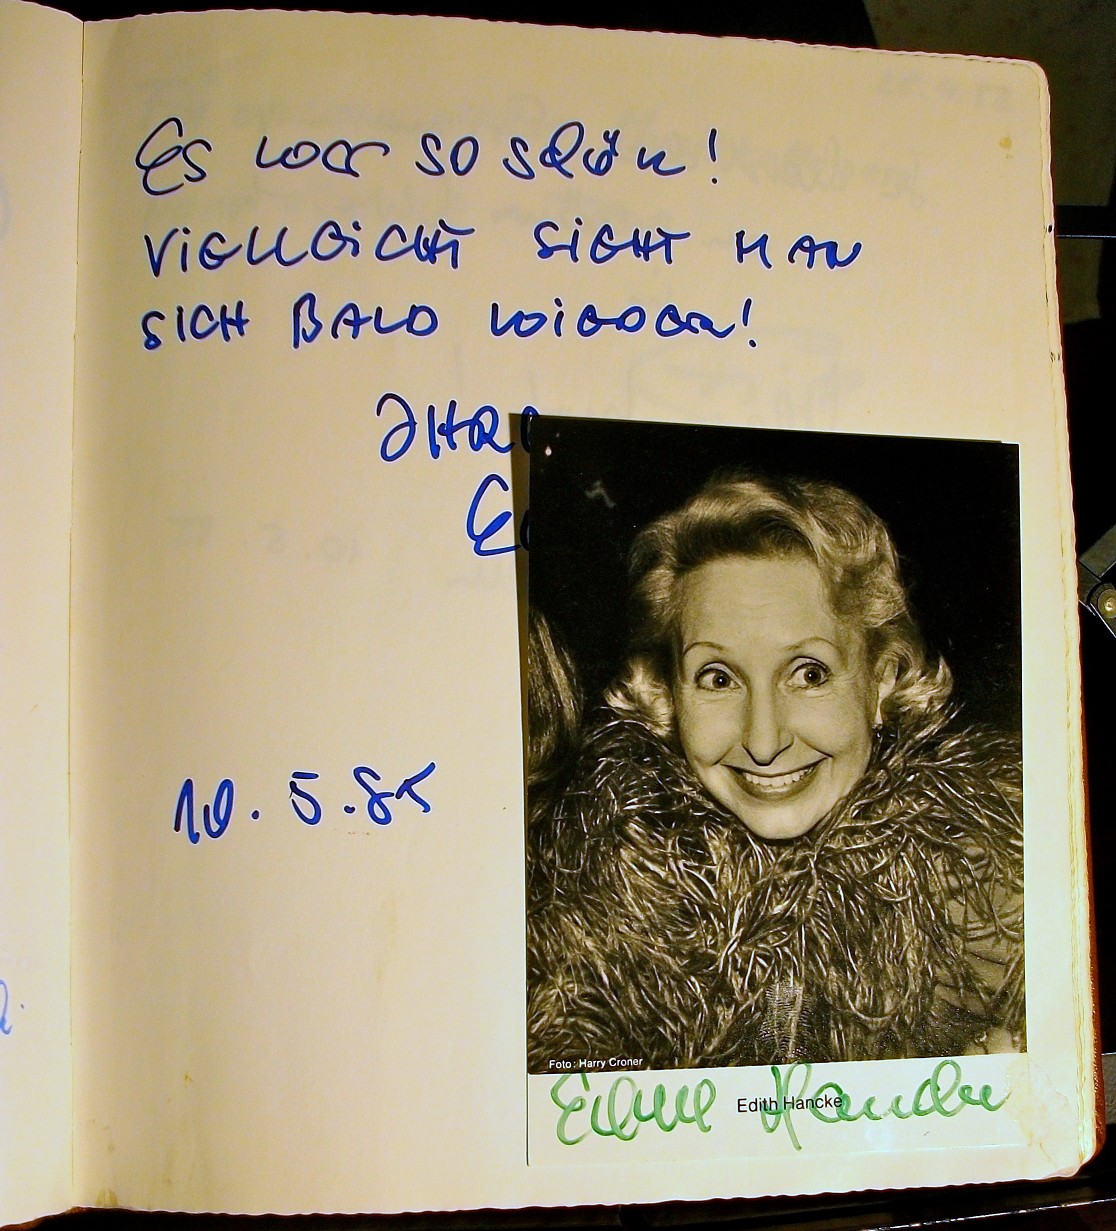 Es war so schön!
VIELLEICHT SIEHT MAN
SICH BALD WIEDER!
IHRE
10. 5. 85
Foto: Harry Croner
Edith Hancke
Edith Hancke